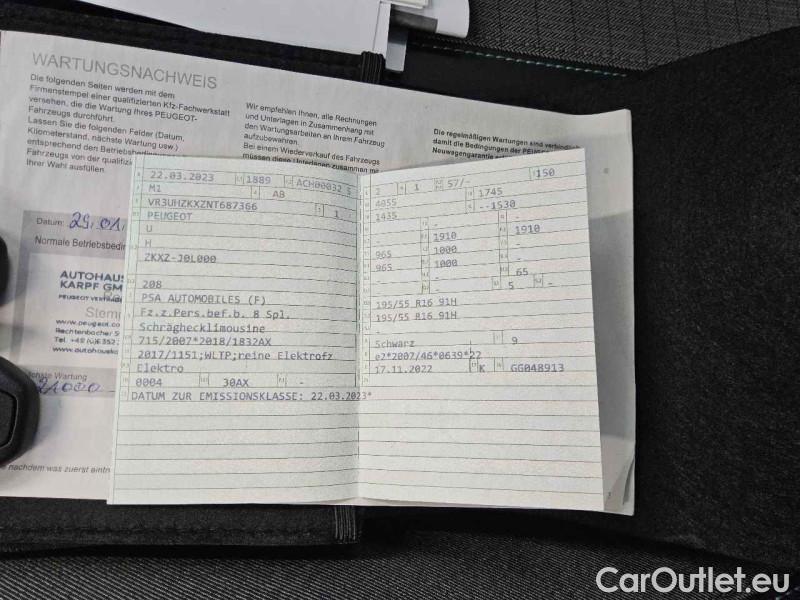 WARTUNGSNACHWEIS
Die folgenden Seiten werden mit dem
Firmenstempel einer qualifizierten Kfz-Fachwerkstatt
versehen, die die Wartung Ihres PEUGEOT-
Fahrzeugs durchführt.
Lassen Sie die folgenden Felder (Datum,
Kilometerstand, nächste Wartung usw.)
entsprechend den
Fahrzeugs von der
Ihrer Wahl ausfüllen.
Wir empfehlen Ihnen, alle Rechnungen
und Unterlagen in Zusammenhang mit
den Wartungsarbeiten an Ihrem Fahrzeug
aufzubewahren.
Im Falle eines Wiederverkaufs des Fahrzeugs
müssen diese Unterlagen zusammen mit
Die regelmäßigen Wartungen sind
damit die Bedingungen der
Neuwagengarantie
Datum: 29.01.
Normale
AUTOHAUS
KARPF GM
Stem
www.peugeot.co
Rechtenbacher
www.autohausk
chste Wartung
21000
nachdem was zuerst eintr
22.03.2023 1889 ACH00032 5
M1 AB
VR3UHZKXZNT687366 1
PEUGEOT
U
H
ZKXZ-J0L000
208
PSA AUTOMOBILES (F)
Fz.z.Pers.bef.b. 8 Spl.
Schräghecklimousine
715/2007*2018/1832AX
2017/1151;WLTP;reine Elektrofz
Elektro
0004 30AX -
DATUM ZUR EMISSIONSKLASSE: 22.03.2023*
2 1 57/- 150
4055 1745
1435 --1530
- -
1910 1910
965 1000 -
965 1000 -
- - 65
- - 5 -
195/55 R16 91H
195/55 R16 91H
Schwarz 9
e2*2007/46*0639*22
17.11.2022 K GG048913
CarOutlet.eu